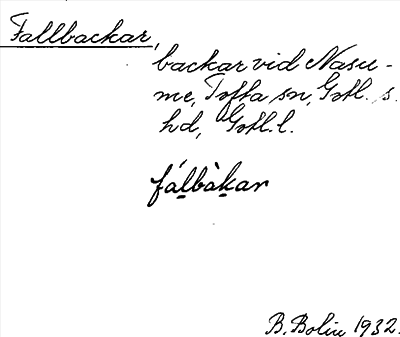 Fallbackar,
backar vid Nasu-
me, Tofta sn, Gotl. s.
hd, Gotl. l.
fálbàkar
B. Bolin 1932.